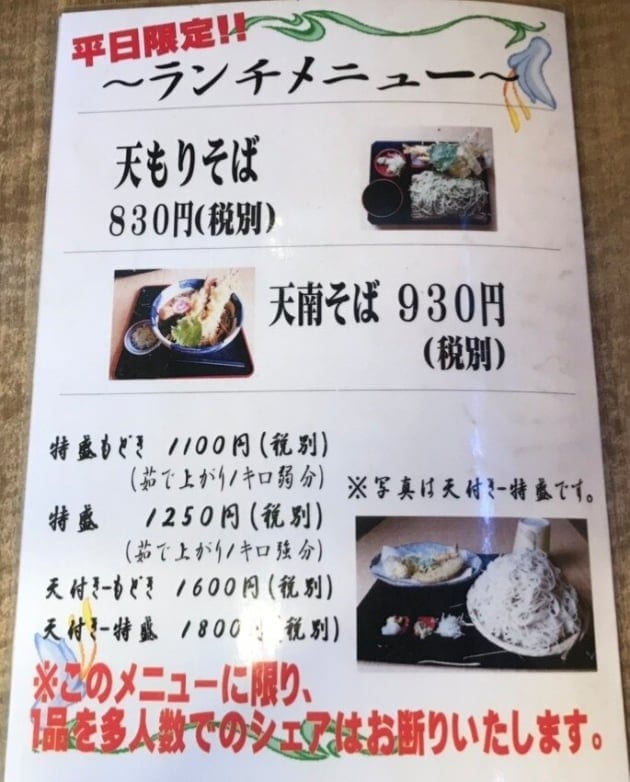 平日限定!!
～ランチメニュー～
天もりそば
830円(税別)
天南そば 930円
(税別)
特盛もどき 1100円(税別)
(茹で上がり1キロ弱分)
※写真は天付き一特盛です。
特盛 1250円(税別)
(茹で上がり1キロ強分)
天付き一もどき 1600円(税別)
天付き一特盛 1800円(税別)
※このメニューに限り、
1品を多人数でのシェアはお断りいたします。